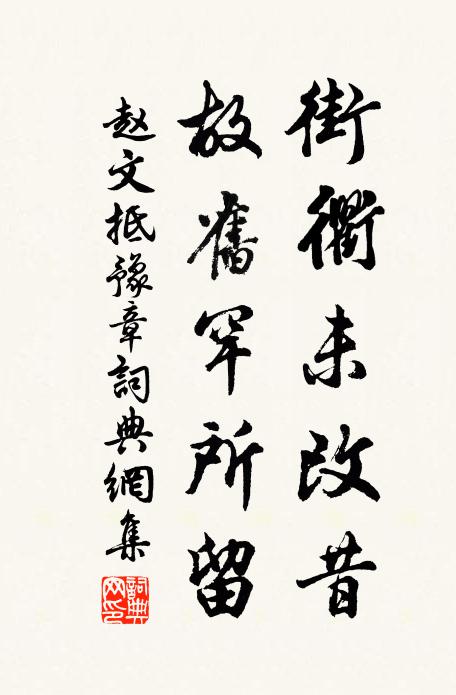 街衢未改昔
故舊罕所留
赵文抵豫章詞典網集
詞典网印